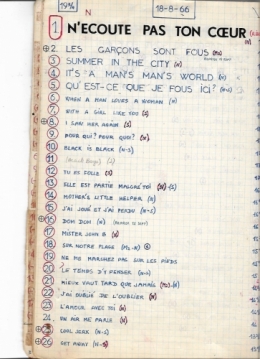 19¾ N 18-8-66
1 N'ECOUTE PAS TON CŒUR
2. LES GARÇONS SONT FOUS
3 SUMMER IN THE CITY (N)
4 IT'S A MAN'S MAN'S WORLD (N)
5 QU'EST-CE QUE JE FOUS ICI? (N-S)
6 WHEN A MAN LOVES A WOMAN (N)
7 WITH A GIRL LIKE YOU (S)
8 I SAW HER AGAIN (S)
9 POUR QUI? POUR QUOI? (N)
10 BLACK IS BLACK (N-S)
11
12 TU ES FOLLE (S)
13 ELLE EST PARTIE MALGRÉ TOI
14 MOTHER'S LITTLE HELPER (S)
15 J'AI JOUÉ ET J'AI PERDU (N-S)
16 DOM DOM (N)
17 MISTER JOHN B (N)
18 SUR NOTRE PLAGE
19 NE ME MARCHEZ PAS SUR LES PIEDS
20 LE TEMPS D'Y PENSER (N-S)
21 MIEUX VAUT TARD QUE JAMAIS
22 J'AI OUBLIÉ DE L'OUBLIER (N)
23 L'AMOUR AVEC TOI (N)
24. ON AIR ME PARIS (N)
25 COOL JERK (N-S)
26 GET AWAY